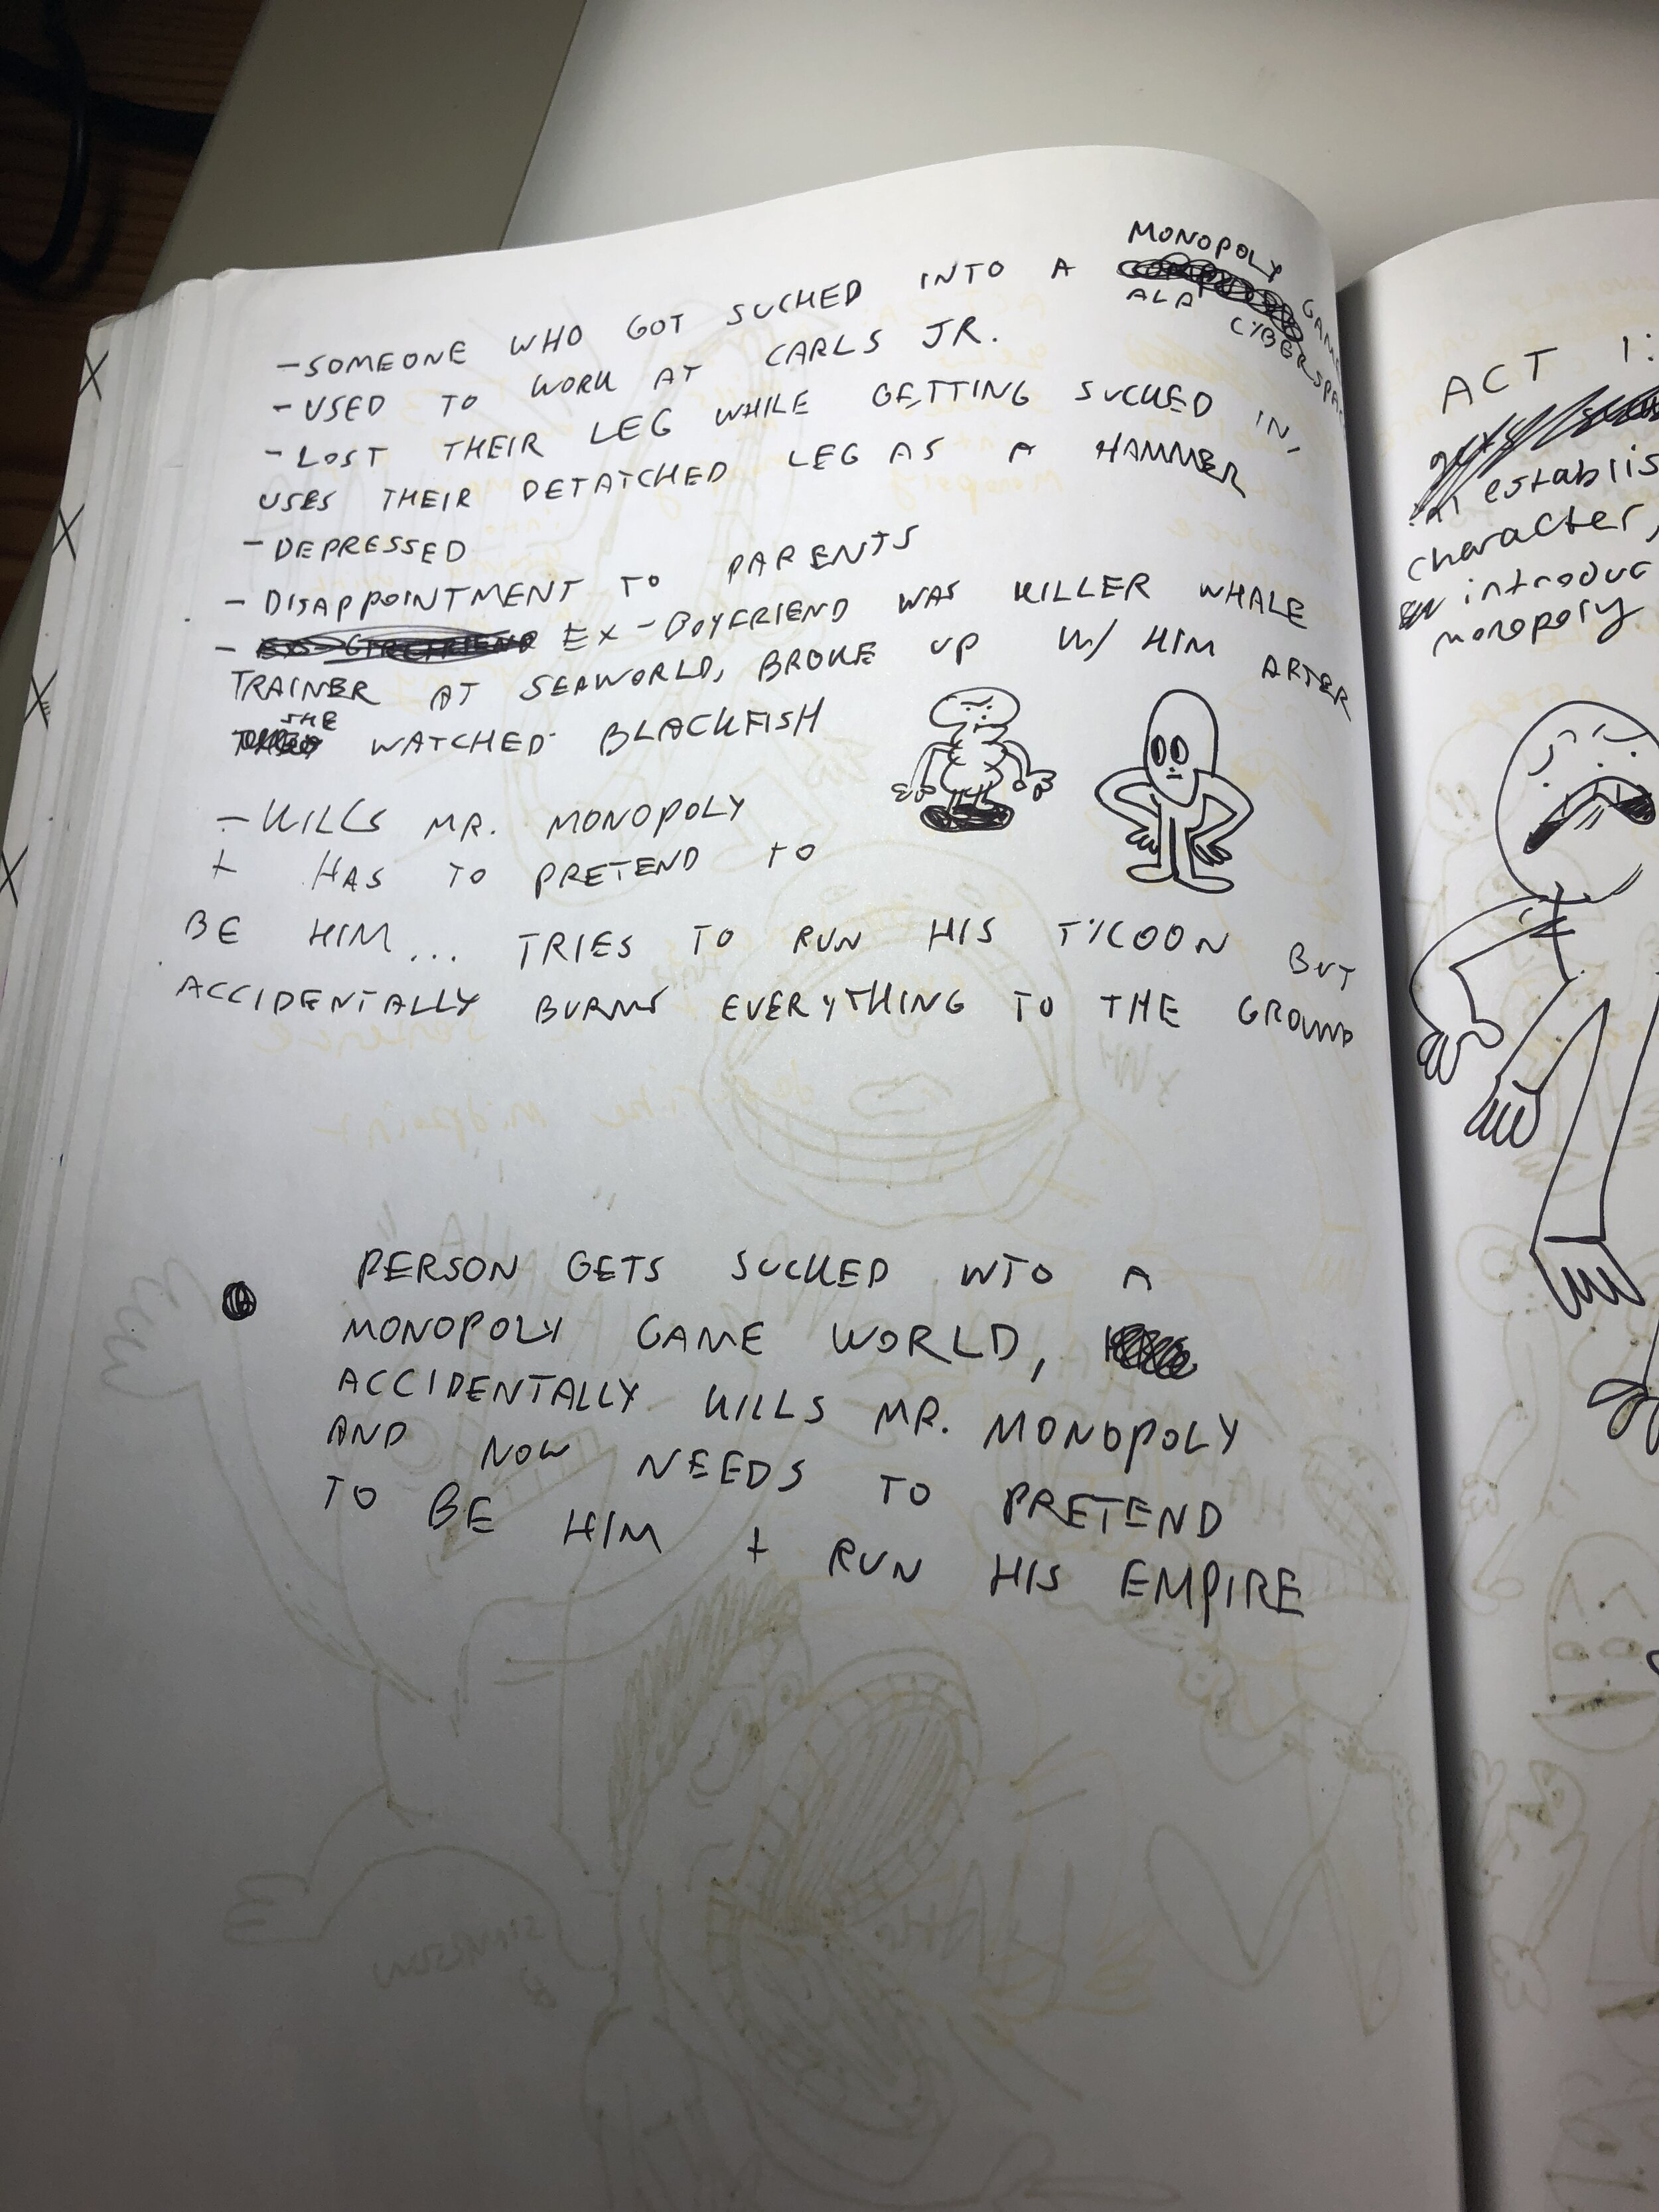 MONOPOLY
- SOMEONE WHO GOT SUCKED INTO A GAME
ALA CYBERSPA
- USED TO WORK AT CARLS JR.
- LOST THEIR LEG WHILE GETTING SUCKED IN,
USES THEIR DETATCHED LEG AS A HAMMER
- DEPRESSED
- DISAPPOINTMENT TO PARENTS
- EX-GIRLFRIEND EX-BOYFRIEND WAS KILLER WHALE
TRAINER AT SEAWORLD, BROKE UP W/ HIM AFTER
SHE
WATCHED BLACKFISH
- KILLS MR. MONOPOLY
+ HAS TO PRETEND TO
BE HIM... TRIES TO RUN HIS TYCOON BUT
ACCIDENTALLY BURNS EVERYTHING TO THE GROUND
PERSON GETS SUCKED INTO A
MONOPOLY GAME WORLD,
ACCIDENTALLY KILLS MR. MONOPOLY
AND NOW NEEDS TO PRETEND
TO BE HIM + RUN HIS EMPIRE
ACT 1:
establis
character,
introduc
monopoly